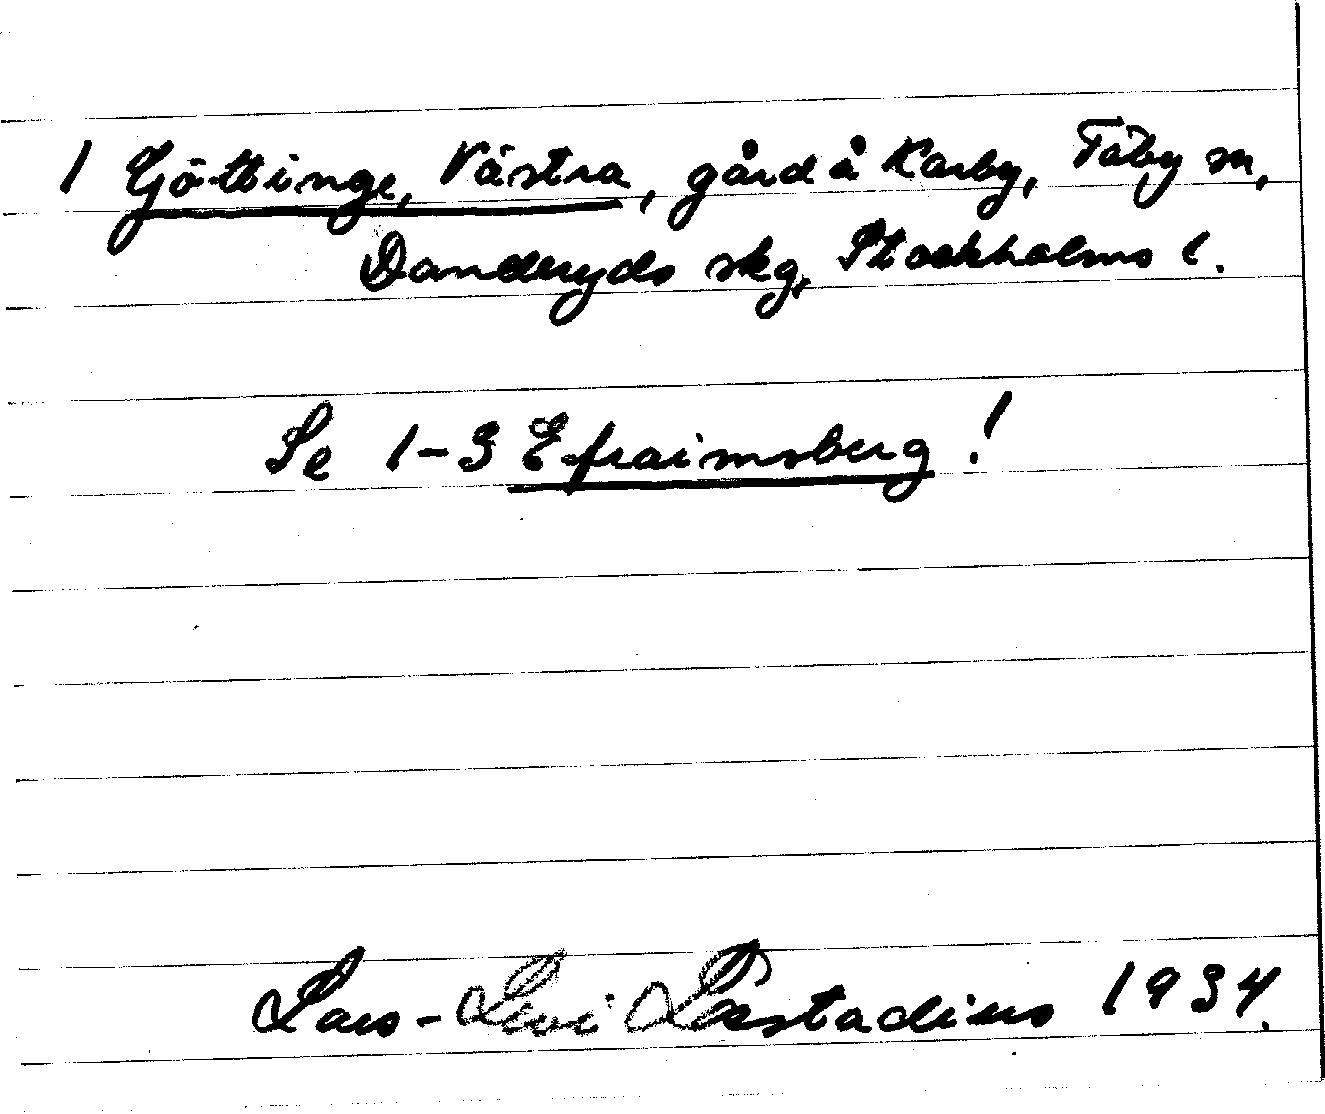 1 Göttinge, Västra, gård å Karby, Täby sn,
Danderyds skg, Stockholms l.
Se 1-3 Efraimsberg!
Lars-Levi Læstadius 1934.